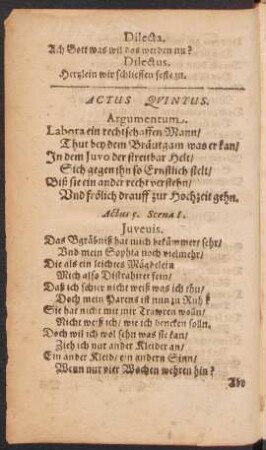 Dilecta.
Ach Gott was wil dos werden nu?
Dilectus.
Hertzlein wir schliessen feste zu.
ACTUS QVINTUS.
Argumentum.
Labora ein rechtschaffen Mann/
Thut bey dem Bräutgam was er kan/
In dem Juvo der streitbar Helt/
Sich gegen ihn so Ernstlich stelt/
Biß sie ein ander recht verstehn/
Vnd frölich drauff zur Hochzeit gehn.
Actus 5. Scena I.
Juveuis.
Das Bgräbniß hat mich bekümmert sehr/
Vnd mein Sophia noch vielmehr/
Die als ein leichtes Mägdelein
Mich also Distrahiret fein/
Daß ich schier nicht weiß was ich thu/
Doch mein Parens ist nun zu Ruh/
Sie hat nicht mit mir Trawren wolln/
Nicht weiß ich/ wie ich dencken solln.
Doch wil ich wol sehn was sie kan/
Zieh ich nur ander Kleider an/
Ein ander Kleid/ ein andern Sinn/
Wenn nur vier Wochen wehren hin?